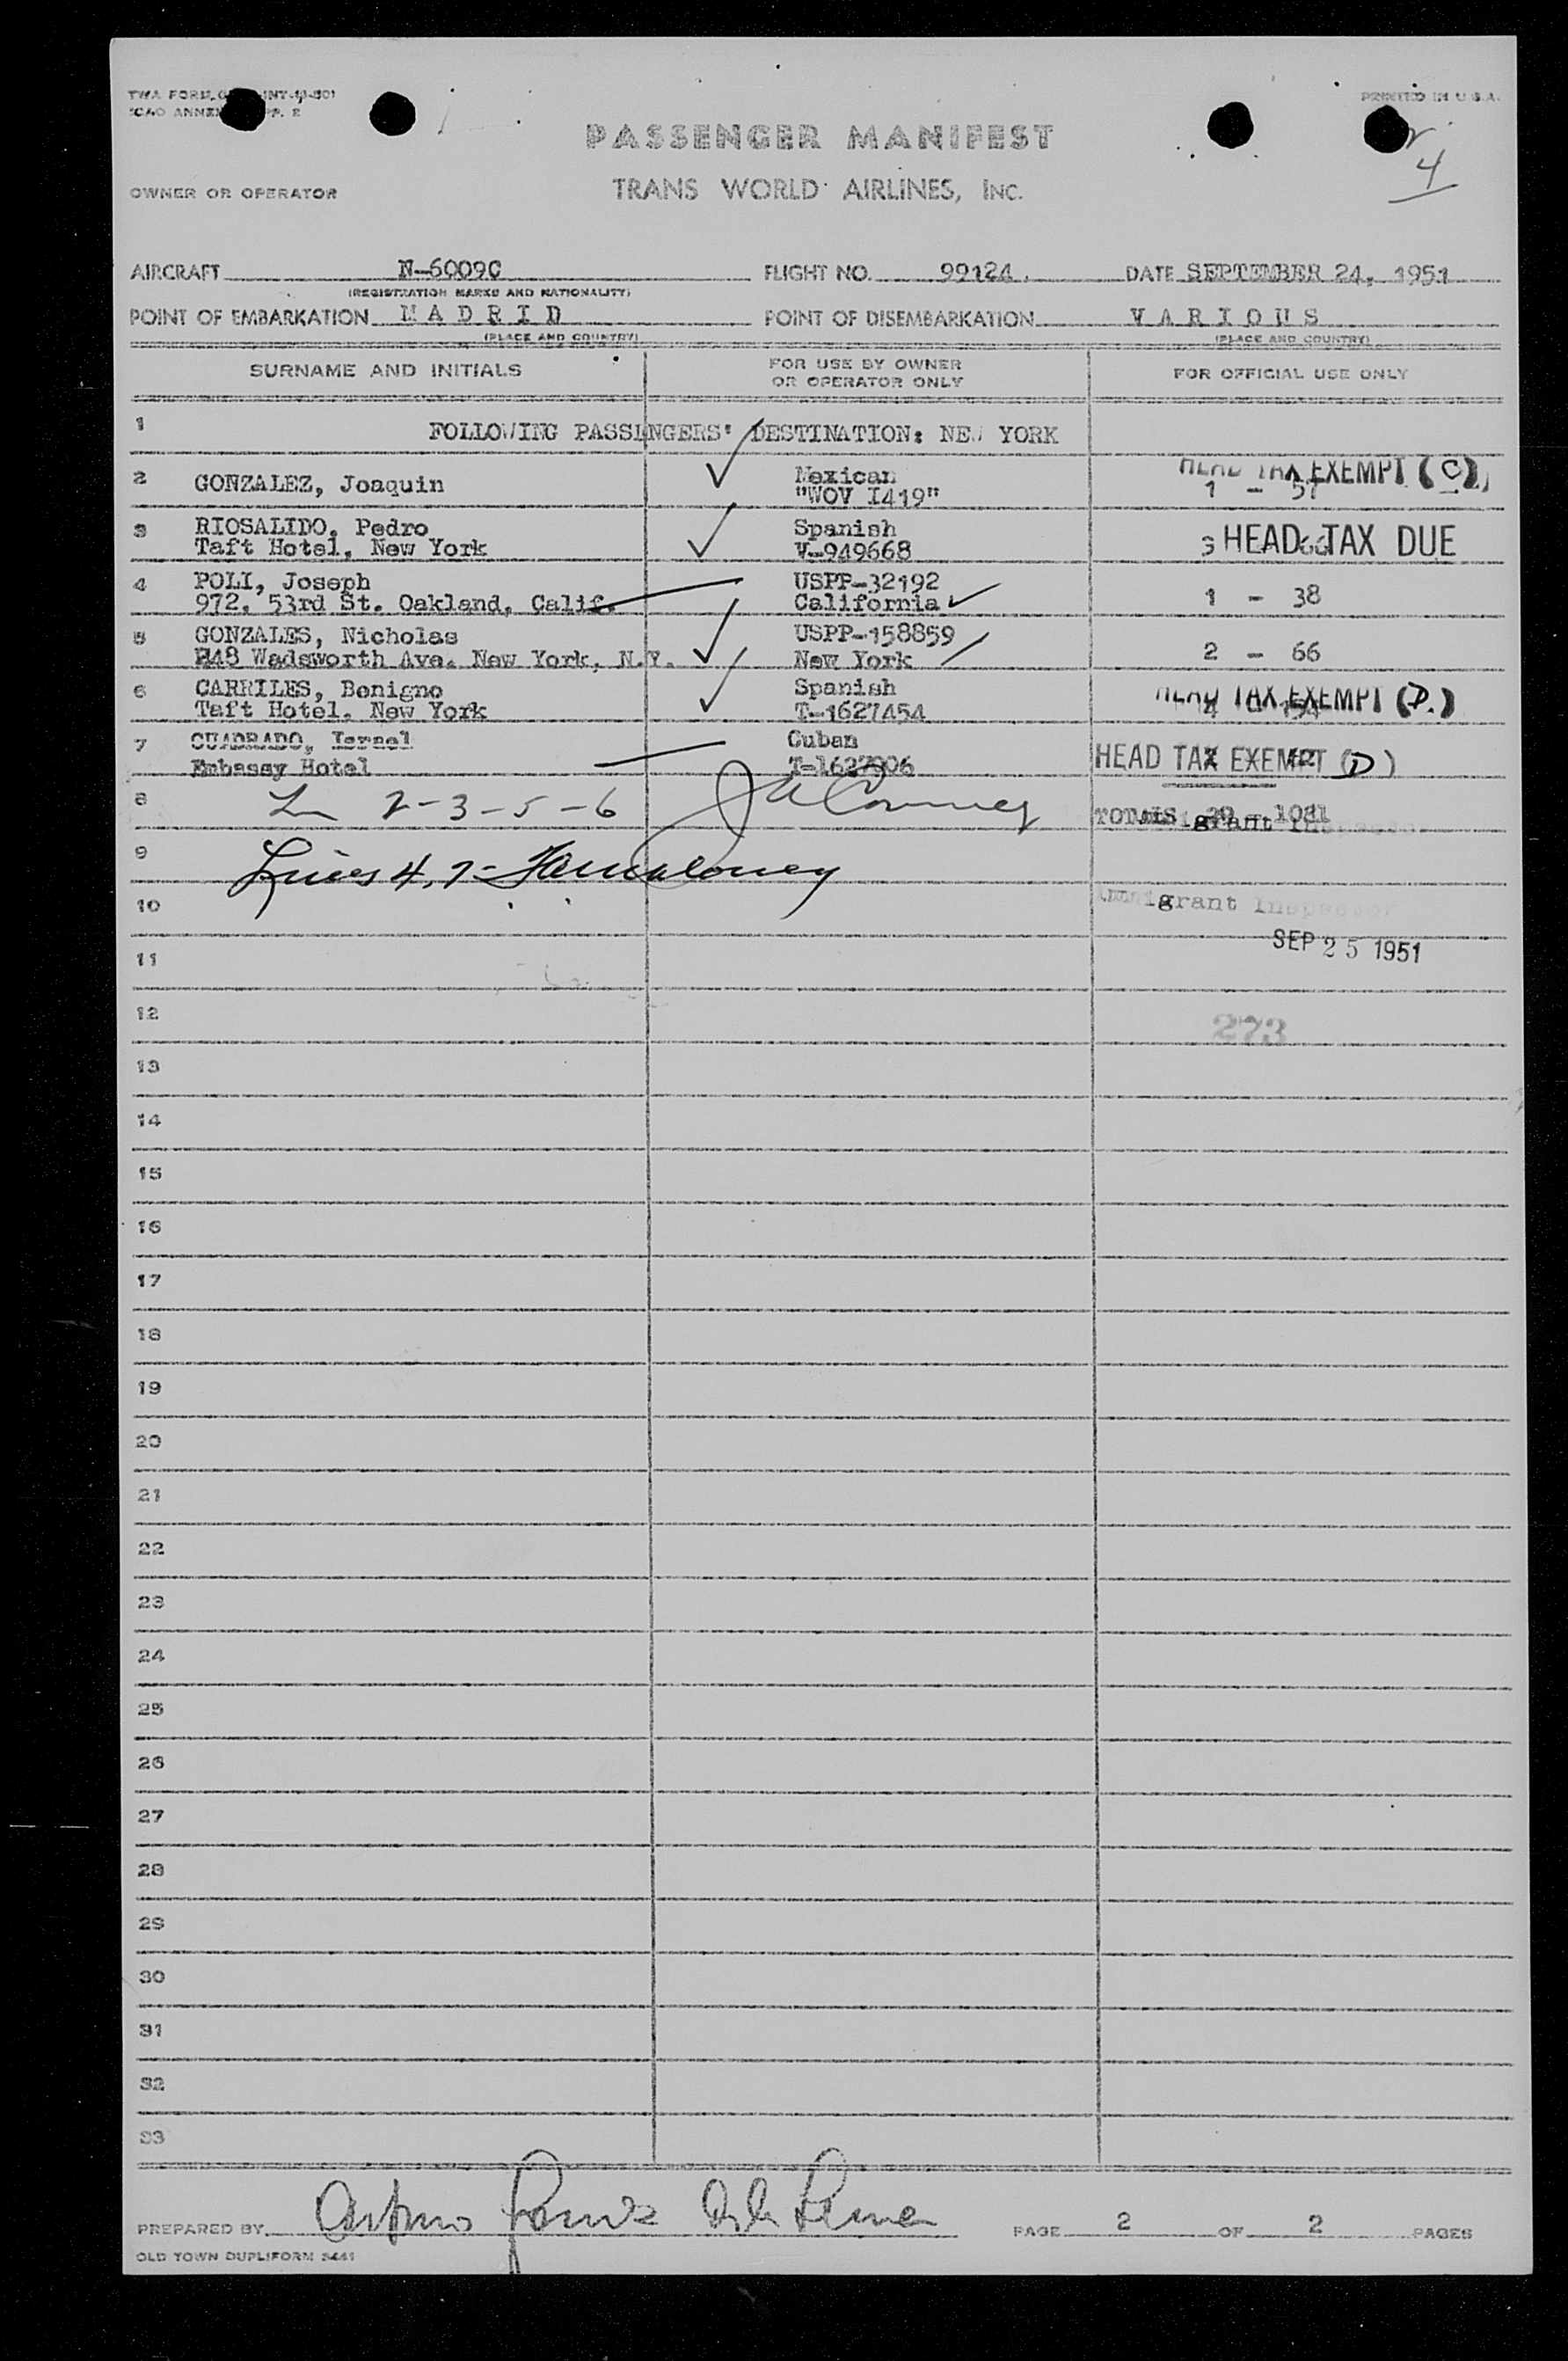 TWA FORM INT-11-301
PRINTED IN U.S.A.
ICAO ANNEX
PASSENGER MANIFEST
4
OWNER OR OPERATOR
TRANS WORLD AIRLINES, INC.
AIRCRAFT N-6009C FLIGHT NO. 99124. DATE SEPTEMBER 24, 1951
(REGISTRATION MARKS AND NATIONALITY)
POINT OF EMBARKATION MADRID POINT OF DISEMBARKATION VARIOUS
(PLACE AND COUNTRY) (PLACE AND COUNTRY)
SURNAME AND INITIALS FOR USE BY OWNER OR OPERATOR ONLY FOR OFFICIAL USE ONLY
1 FOLLOWING PASSENGERS' DESTINATION: NEW YORK
2 GONZALEZ, Joaquin Mexican HEAD TAX EXEMPT (C)
"WOV I419" 1 - 57
3 RIOSALIDO, Pedro Spanish
Taft Hotel, New York V-949668 3 HEAD TAX DUE
4 POLI, Joseph USPP-32192
972, 53rd St. Oakland, Calif. California 1 - 38
5 GONZALES, Nicholas USPP-158859
248 Wadsworth Ave. New York, N.Y. New York 2 - 66
6 CARRILES, Benigno Spanish HEAD TAX EXEMPT (D.)
Taft Hotel, New York T-1627454
7 CUADRADO, Israel Cuban
Embassy Hotel T-1627906 HEAD TAX EXEMPT (D)
8 Ln 2-3-5-6
TOTALS 20 - 1081
9 Lines 4, 7-
10 Immigrant Inspector
SEP 25 1951
11
12 273
13
14
15
16
17
18
19
20
21
22
23
24
25
26
27
28
29
30
31
32
33
PREPARED BY PAGE 2 OF 2 PAGES
OLD TOWN DUPLIFORM